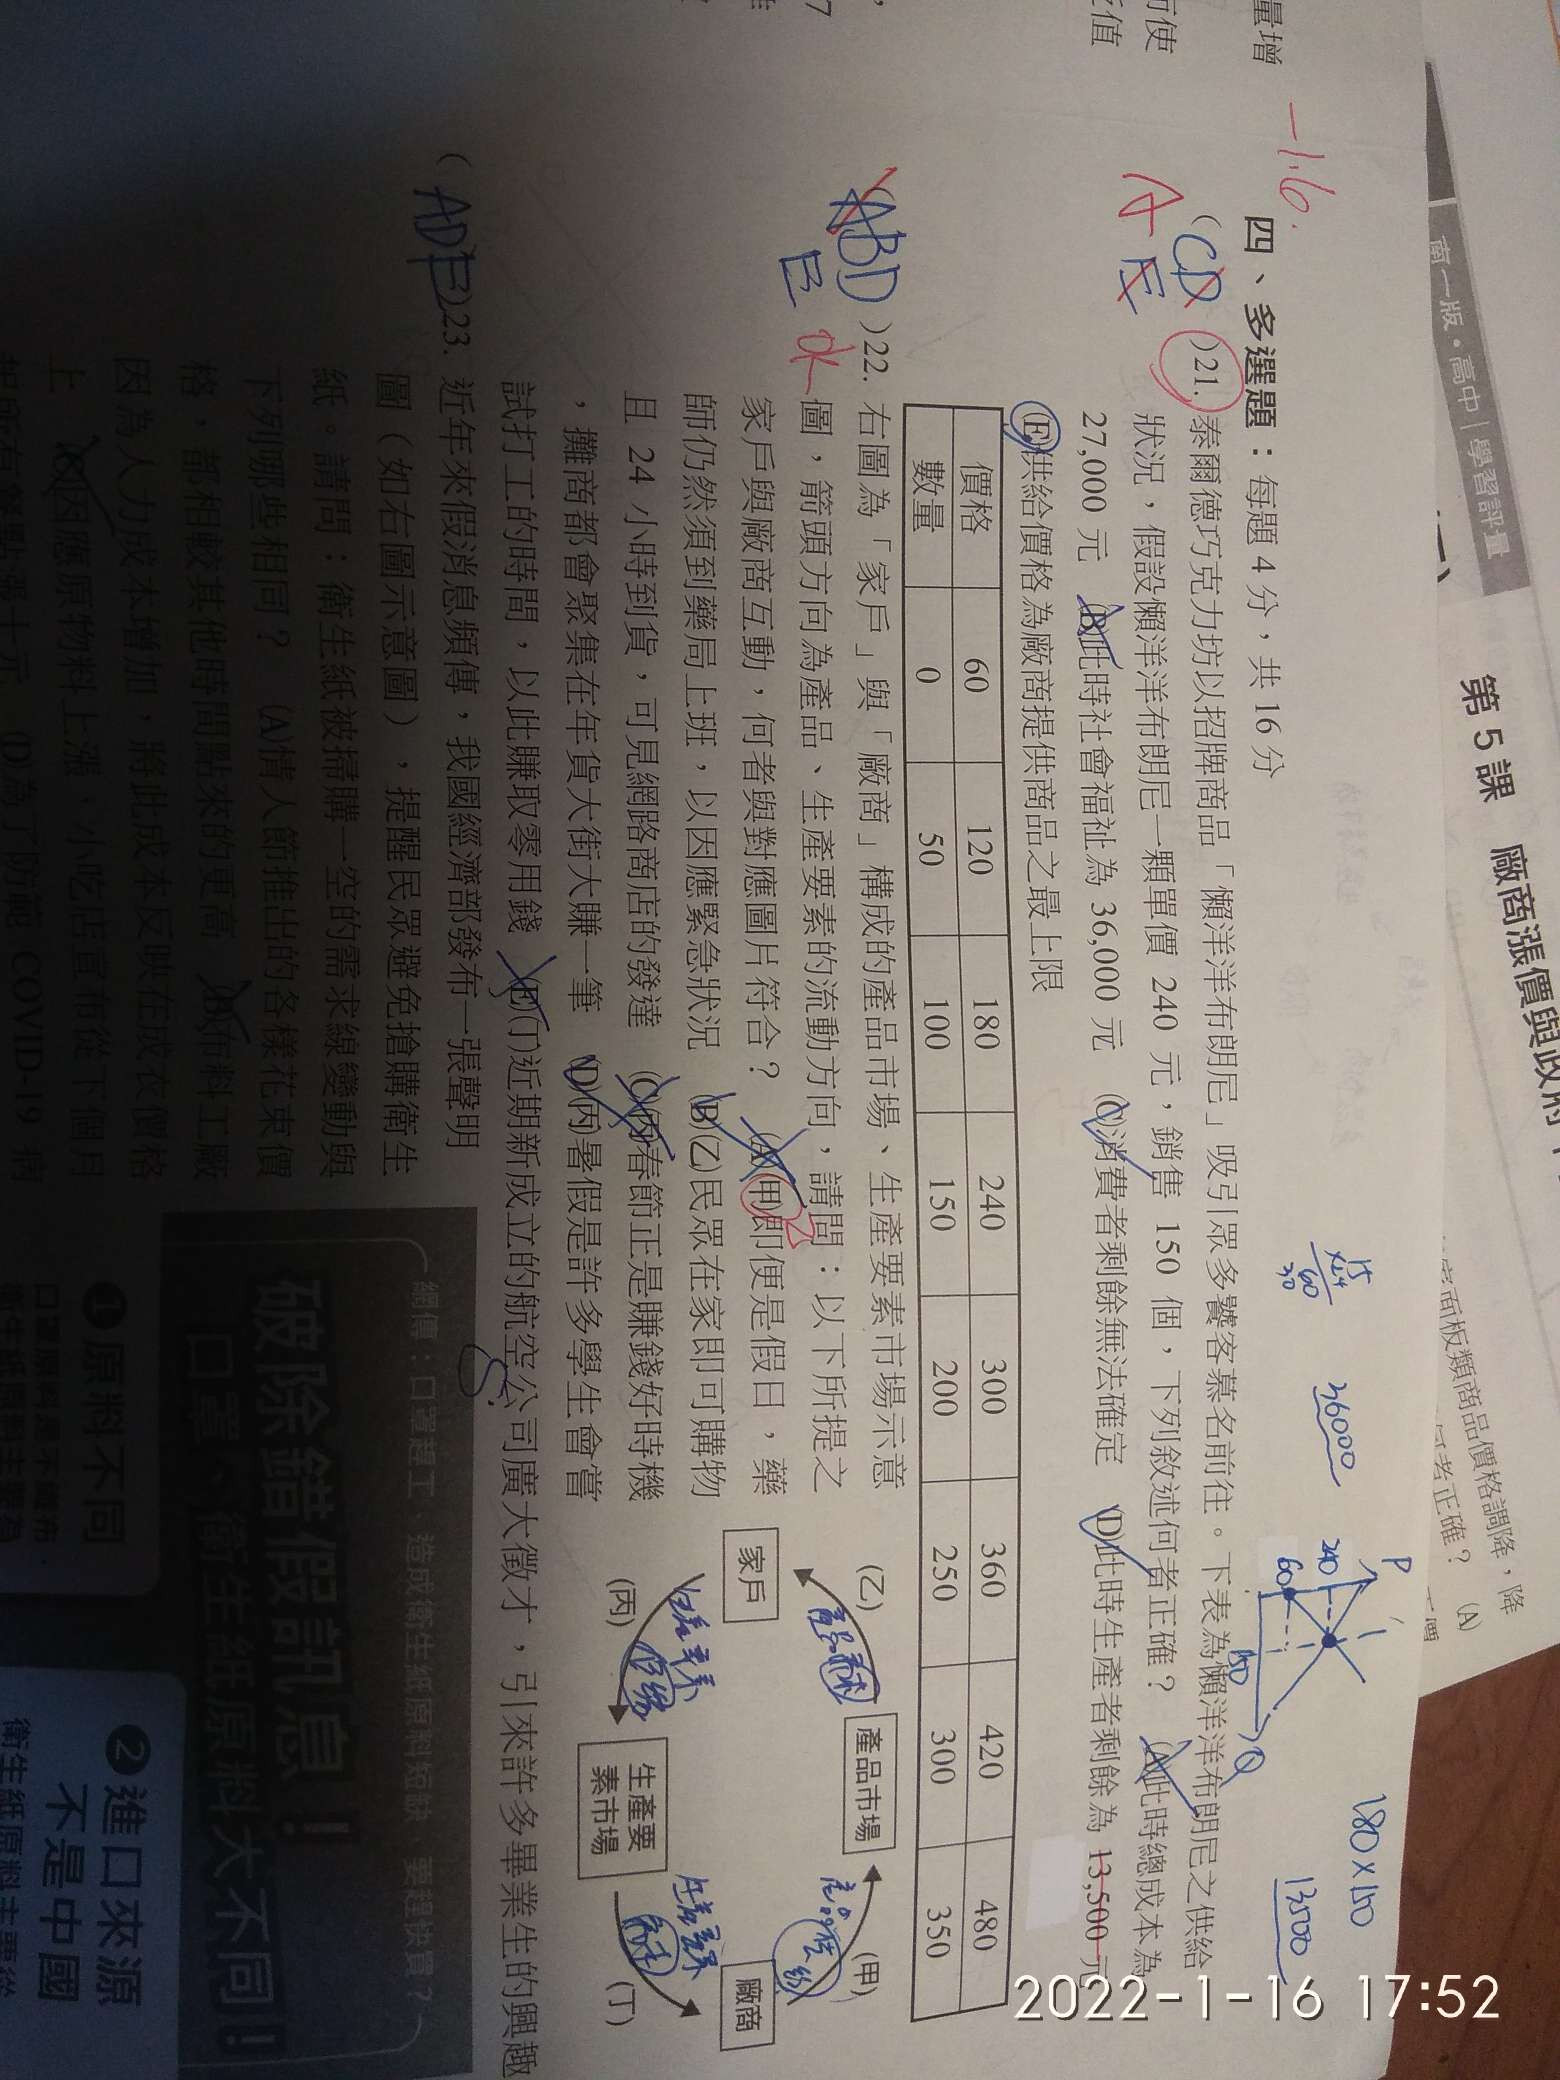 量增
前使
值
7
南一版・高中│學習評量
第 5 課 廠商漲價與政府
面板類商品價格調降,降
何者正確? (A)
-1.6.
四、多選題:每題 4 分,共 16 分
(CD)21. 泰爾德巧克力坊以招牌商品「懶洋洋布朗尼」吸引眾多饕客慕名前往。下表為懶洋洋布朗尼之供給
A E
狀況,假設懶洋洋布朗尼一顆單價 240 元,銷售 150 個,下列敘述何者正確? (A)此時總成本為
27,000 元 (B)此時社會福祉為 36,000 元 (C)消費者剩餘無法確定 (D)此時生產者剩餘為 13,500 元
(E)供給價格為廠商提供商品之最上限
價格 60 120 180 240 300 360 420 480
數量 0 50 100 150 200 250 300 350
15
×24
60
30
36000
P
240
60
150
Q
180×150
13500
(ABD)22. 右圖為「家戶」與「廠商」構成的產品市場、生產要素市場示意
E
圖,箭頭方向為產品、生產要素的流動方向,請問:以下所提之
家戶與廠商互動,何者與對應圖片符合? (A)(甲)即便是假日,藥
師仍然須到藥局上班,以因應緊急狀況 (B)(乙)民眾在家即可購物
且 24 小時到貨,可見網路商店的發達 (C)(丙)春節正是賺錢好時機
,攤商都會聚集在年貨大街大賺一筆 (D)(丙)暑假是許多學生會嘗
試打工的時間,以此賺取零用錢 (E)(丁)近期新成立的航空公司廣大徵才,引來許多畢業生的興趣
(乙)
產品市場
(甲)
家戶
廠商
(丙)
生產要
素市場
(丁)
產品需求
產品供給
生產要素
供給
生產要素
需求
(ADE)23. 近年來假消息頻傳,我國經濟部發布一張聲明
圖(如右圖示意圖),提醒民眾避免搶購衛生
紙。請問:衛生紙被掃購一空的需求線變動與
下列哪些相同? (A)情人節推出的各樣花束價
格,都相較其他時間點來的更高 (B)布料工廠
因為人力成本增加,將此成本反映在成衣價格
上 (C)因應原物料上漲,小吃店宣布從下個月
起所有餐點漲十元 (D)為了防範 COVID-19 病
網傳:口罩趕工 造成衛生紙原料短缺、要趕快買?
破除錯假訊息!
口罩、衛生紙原料大不同!
1 原料不同
2 進口來源
不是中國
2022-1-16 17:52